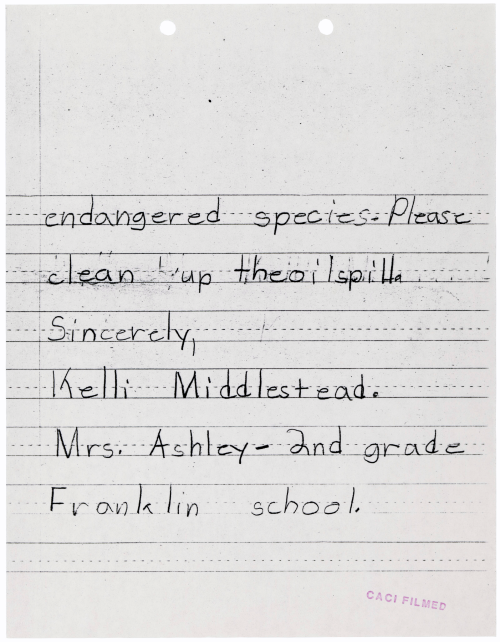 endangered species. Please
clean up theoilspill.
Sincerely,
Kelli Middlestead.
Mrs. Ashley- 2nd grade
Franklin school.
CACI FILMED